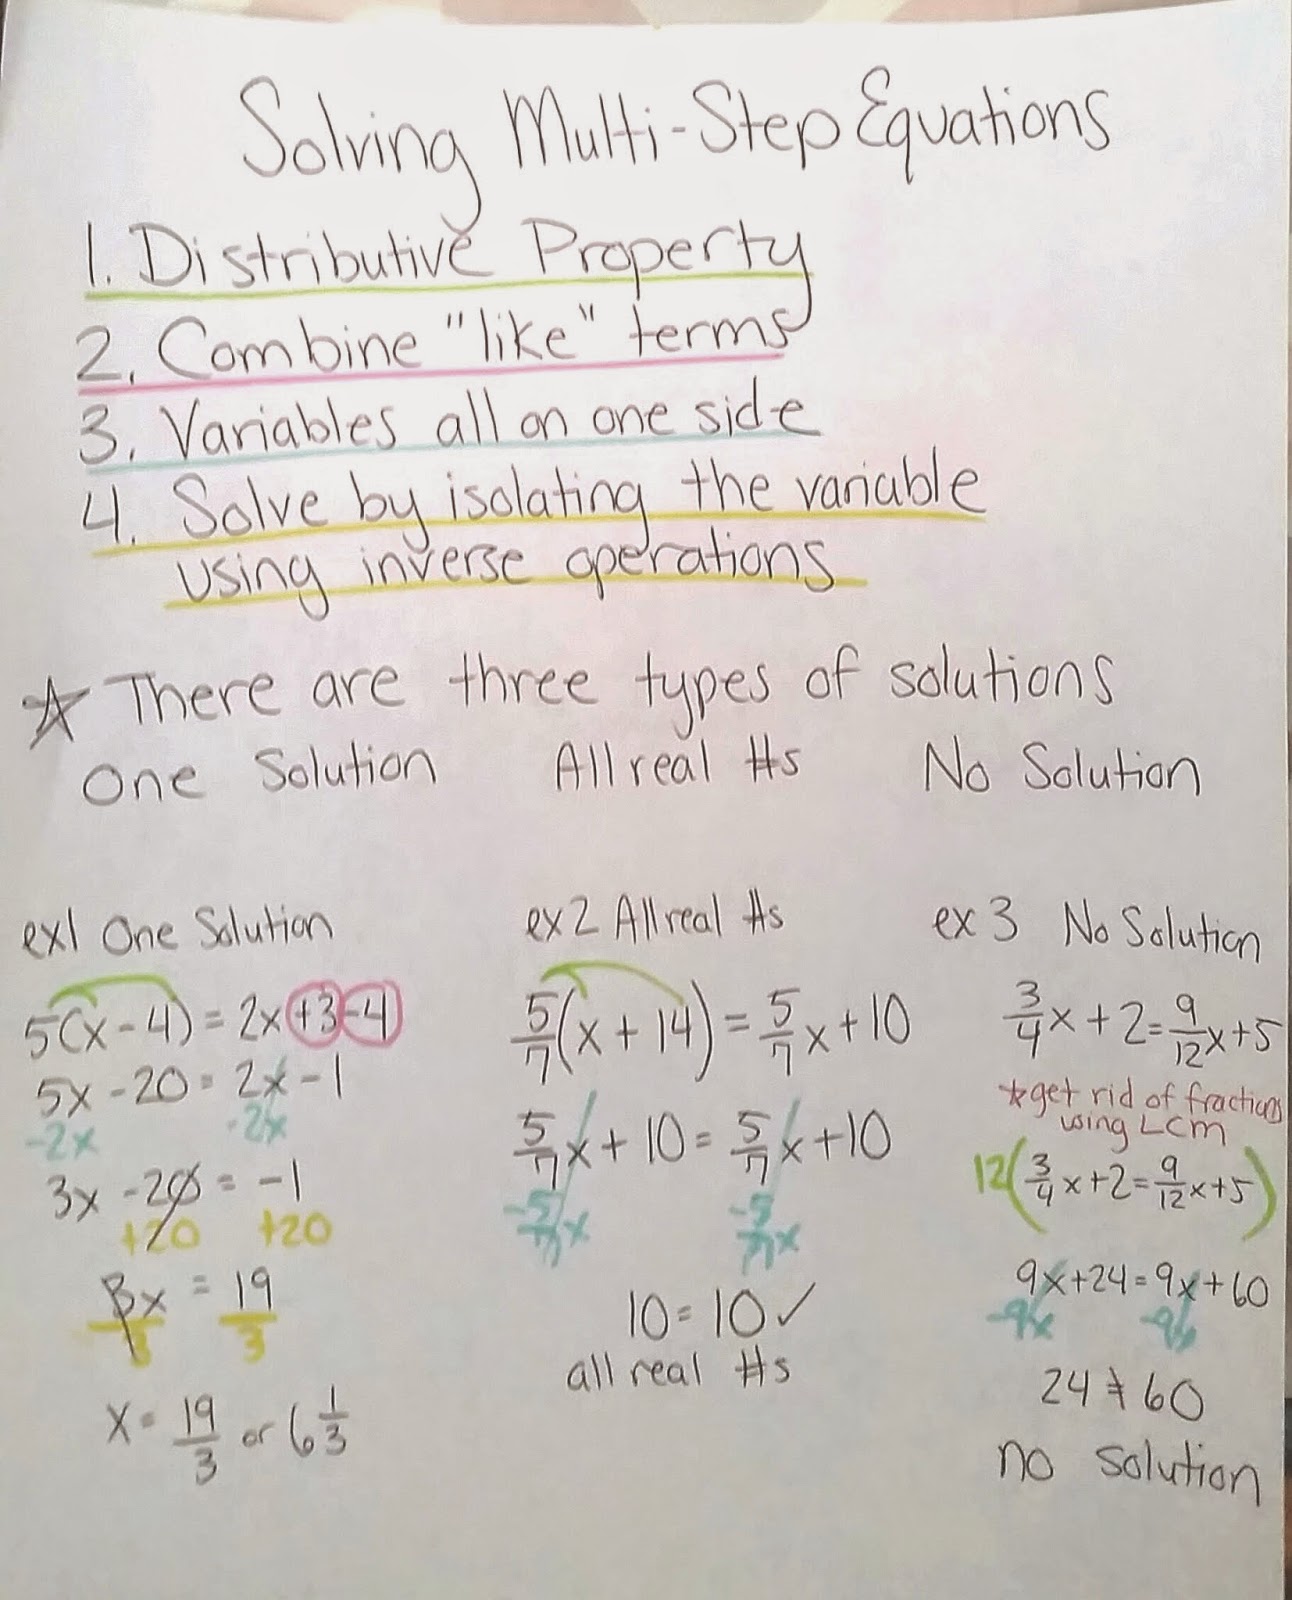 Solving Multi-Step Equations
1. Distributive Property
2. Combine "like" terms
3. Variables all on one side
4. Solve by isolating the variable
using inverse operations
☆ There are three types of solutions
One Solution All real #s No Solution
ex1 One Solution
5(x-4) = 2x+3-4
5x-20 = 2x-1
-2x -2x
3x -20 = -1
+20 +20
3x = 19
3 3
x = 19/3 or 6 1/3
ex2 All real #s
5/7(x+14) = 5/7x+10
5/7x+10 = 5/7x+10
-5/7x -5/7x
10 = 10 ✓
all real #s
ex3 No Solution
3/4x+2 = 9/12x+5
*get rid of fractions
using LCM
12(3/4x+2 = 9/12x+5)
9x+24 = 9x+60
-9x -9x
24 ≠ 60
no solution